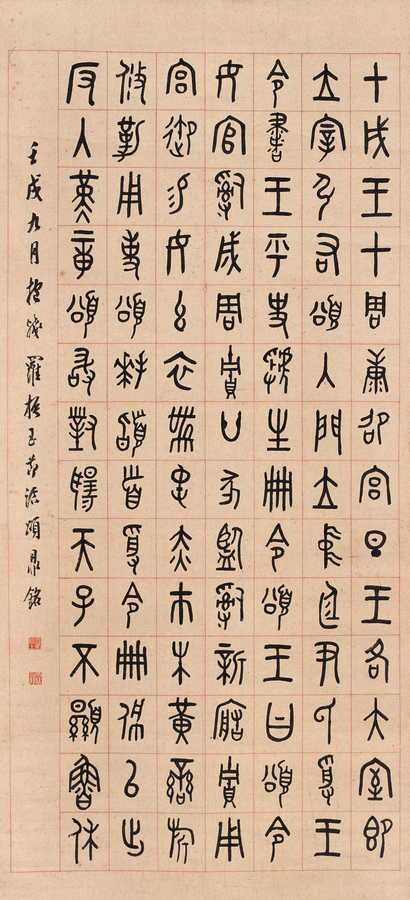 甲戌王才周康邵宮旦王各大室即
立宰弘右頌入門立中廷尹氏受王
令書王乎史虢生冊令頌王曰頌令
女官𤔲成周貯廿家監𤔲新造貯用
宮御易女玄衣黹屯赤巿朱黃䜌旂
攸勒用事頌拜𩒨首受令冊佩以出
反入堇章頌敢對揚天子不顯魯休
壬戌九月 羅振玉節臨頌鼎銘